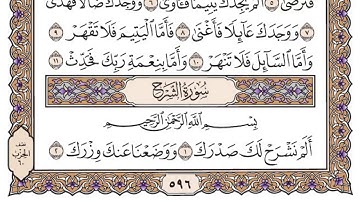 فَتَرْضَىٰ ٥ أَلَمْ يَجِدْكَ يَتِيمًا فَـَٔاوَىٰ ٦ وَوَجَدَكَ ضَآلًّا فَهَدَىٰ
٧ وَوَجَدَكَ عَآئِلًا فَأَغْنَىٰ ٨ فَأَمَّا ٱلْيَتِيمَ فَلَا تَقْهَرْ ٩
وَأَمَّا ٱلسَّآئِلَ فَلَا تَنْهَرْ ١٠ وَأَمَّا بِنِعْمَةِ رَبِّكَ فَحَدِّثْ ١١
سُورَةُ الشَّرْحِ
بِسْمِ ٱللَّهِ ٱلرَّحْمَٰنِ ٱلرَّحِيمِ
أَلَمْ نَشْرَحْ لَكَ صَدْرَكَ ١ وَوَضَعْنَا عَنكَ وِزْرَكَ ٢
نصف
الحزب
٦٠
٥٩٦